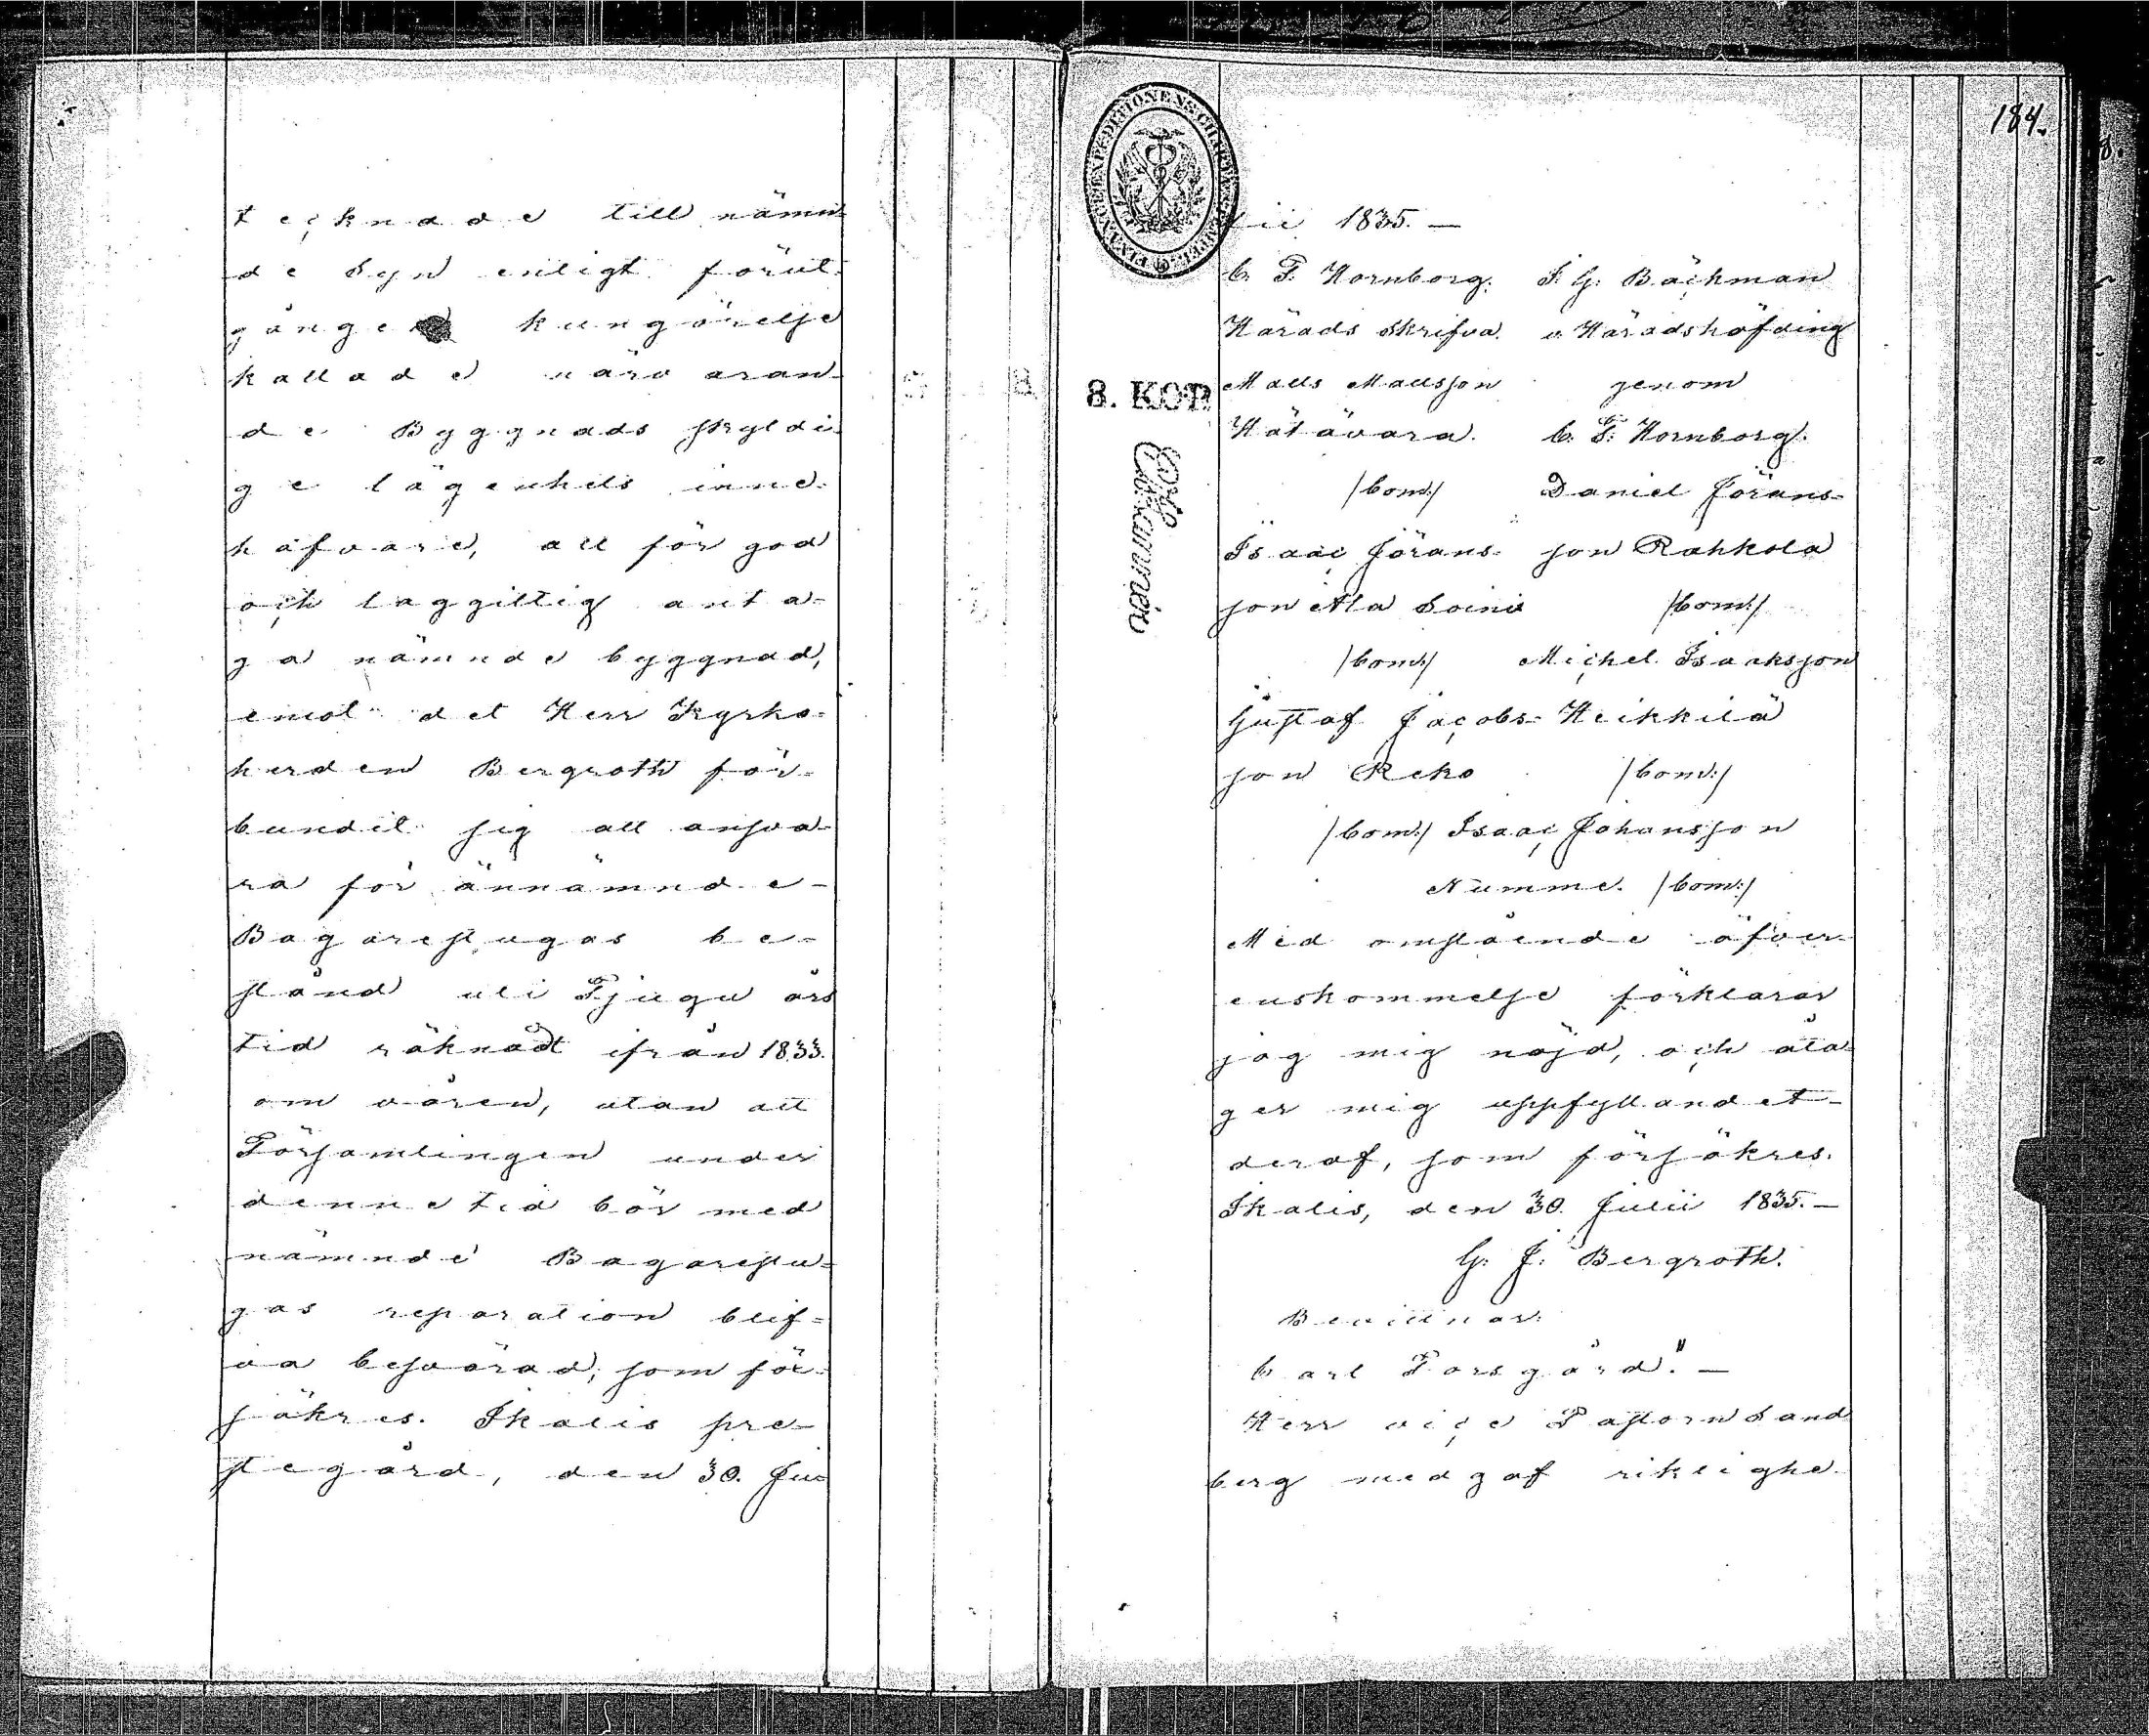 tecknade till nämn-
de Syn enligt förut-
gången kungörelse
kallade närvaran-
de Byggnads skyldi-
ge lägenhets inne-
hafvare, att för god
och laggiltig anta-
ga nämnde byggnad,
emot det Herr Kyrko-
herden Bergroth för-
bundit sig att ansva-
ra för ännämnde
Bagarestugas be-
stånd uti Tjugu års
tid räknadt ifrån 1833.
om våren, utan att
Församlingen under
denne tid bör med
nämnde Bagarestu-
gas reparation blif-
va besvärad; som för-
säkres. Ikalis pre-
stegård, den 30. Ju-
184.
lii 1835. —
C. F. Hornborg. J. G. Bäckman
Härads Skrifva. v. Häradshöfding
8. KOP.
Matts Mattsson genom
Hätävara. C. F. Hornborg.
/bom:/ Daniel Jörans-
Isaac Jörans- son Rahkola
son Ala Soini /bom:/
/bom:/ Michel Isaaksson
Gustaf Jacobs- Heikkilä
son Reko /bom:/
/bom:/ Isaac Johansson
Numme. /bom:/
Med omstående öfver-
enskommelse förklarar
jag mig nöjd, och åta-
ger mig uppfyllandet
deraf, som försäkres.
Ikalis, den 30. Julii 1835. —
G. J. Bergroth.
Bevittnar:
Carl Forsgård." —
Herr vice Pastorn Sand
berg medgaf riktighe-